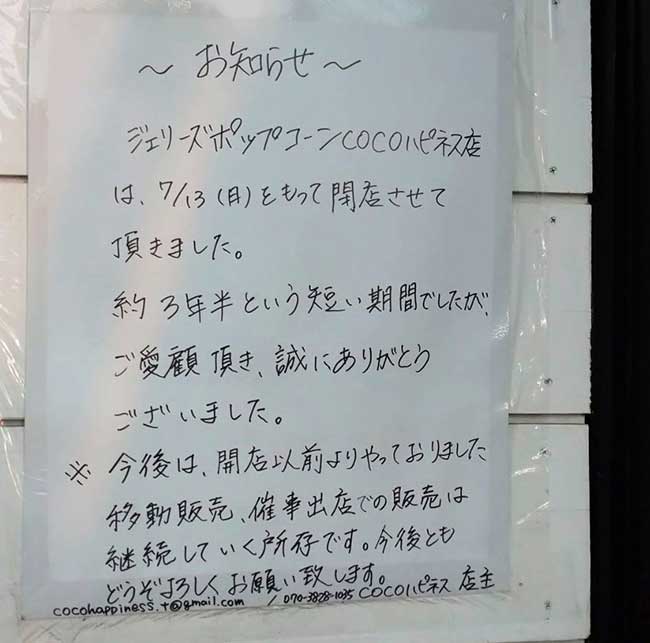 ～お知らせ～
ジェリーズポップコーンCOCOハピネス店
は、7/13(日)をもって閉店させて
頂きました。
約3年半という短い期間でしたが、
ご愛顧頂き、誠にありがとう
ございました。
※今後は、開店以前よりやっておりました
移動販売、催事出店での販売は
継続していく所存です。今後とも
どうぞよろしくお願い致します。
cocohappiness.t@gmail.com / 070-3828-1035 COCOハピネス 店主